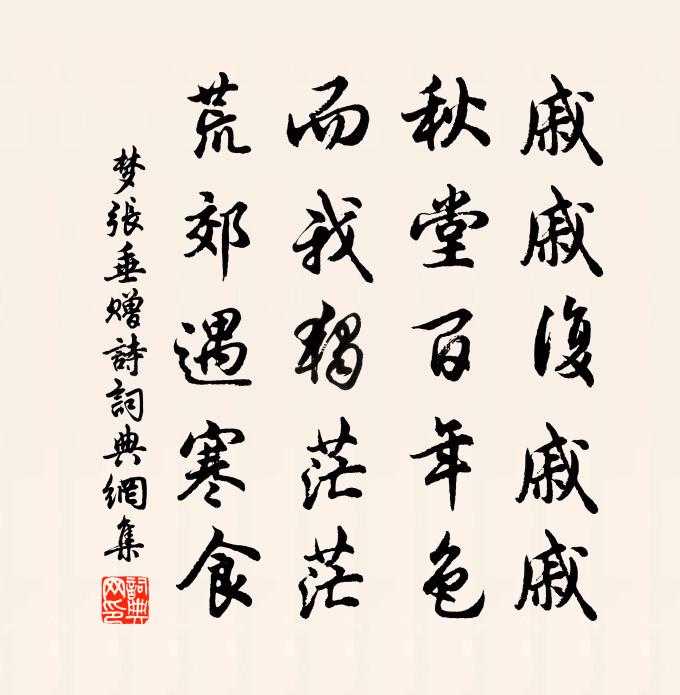 戚戚復戚戚
秋堂百年色
而我獨茫茫
荒郊遇寒食
梦張垂赠詩詞典網集
詞典網印